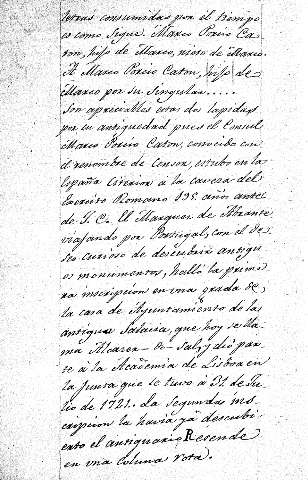 letras consumidas por el tiempo
es como sigue. Marco Porcio Ca-
ton, hijo de Marco, nieto de Marco.
A Marco Porcio Caton, hijo de
Marco por su singular.....
Son apreciables estas dos lapidas
por su antiguedad pues el Consul
Marco Porcio Caton, conocido con
el renombre de Censor, estubo en la
España citerior à la caveza del
Exercito Romano 195 años antes
de J. C. El Marques de Abrantes
viajando por Portugal, con el de-
seo curioso de descubrir antigu-
os monumentos, halló la prime-
ra inscripcion en una grada de
la casa de Ayuntamiento de la
antigua Salacia, que hoy se lla-
ma Alcazar-do-Sal, y dió par-
te à la Academia de Lisboa en
la Junta que se tuvo à 31 de Ju-
lio de 1721. La segunda ins-
cripcion la havia ya descubi-
erto el antiquario Resende
en una coluna rota.